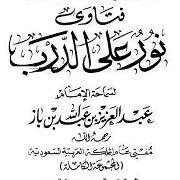 فتاوى
نور على الدرب
لسماحة الإمام
عبد العزيز بن عبد الله بن باز
رحمه الله
مفتي عام المملكة العربية السعودية
(المجموعة الكاملة)